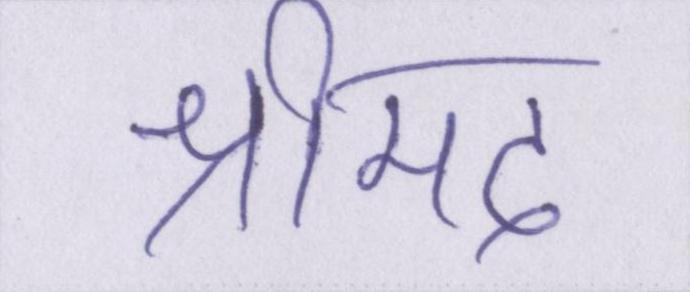 श्रीमद